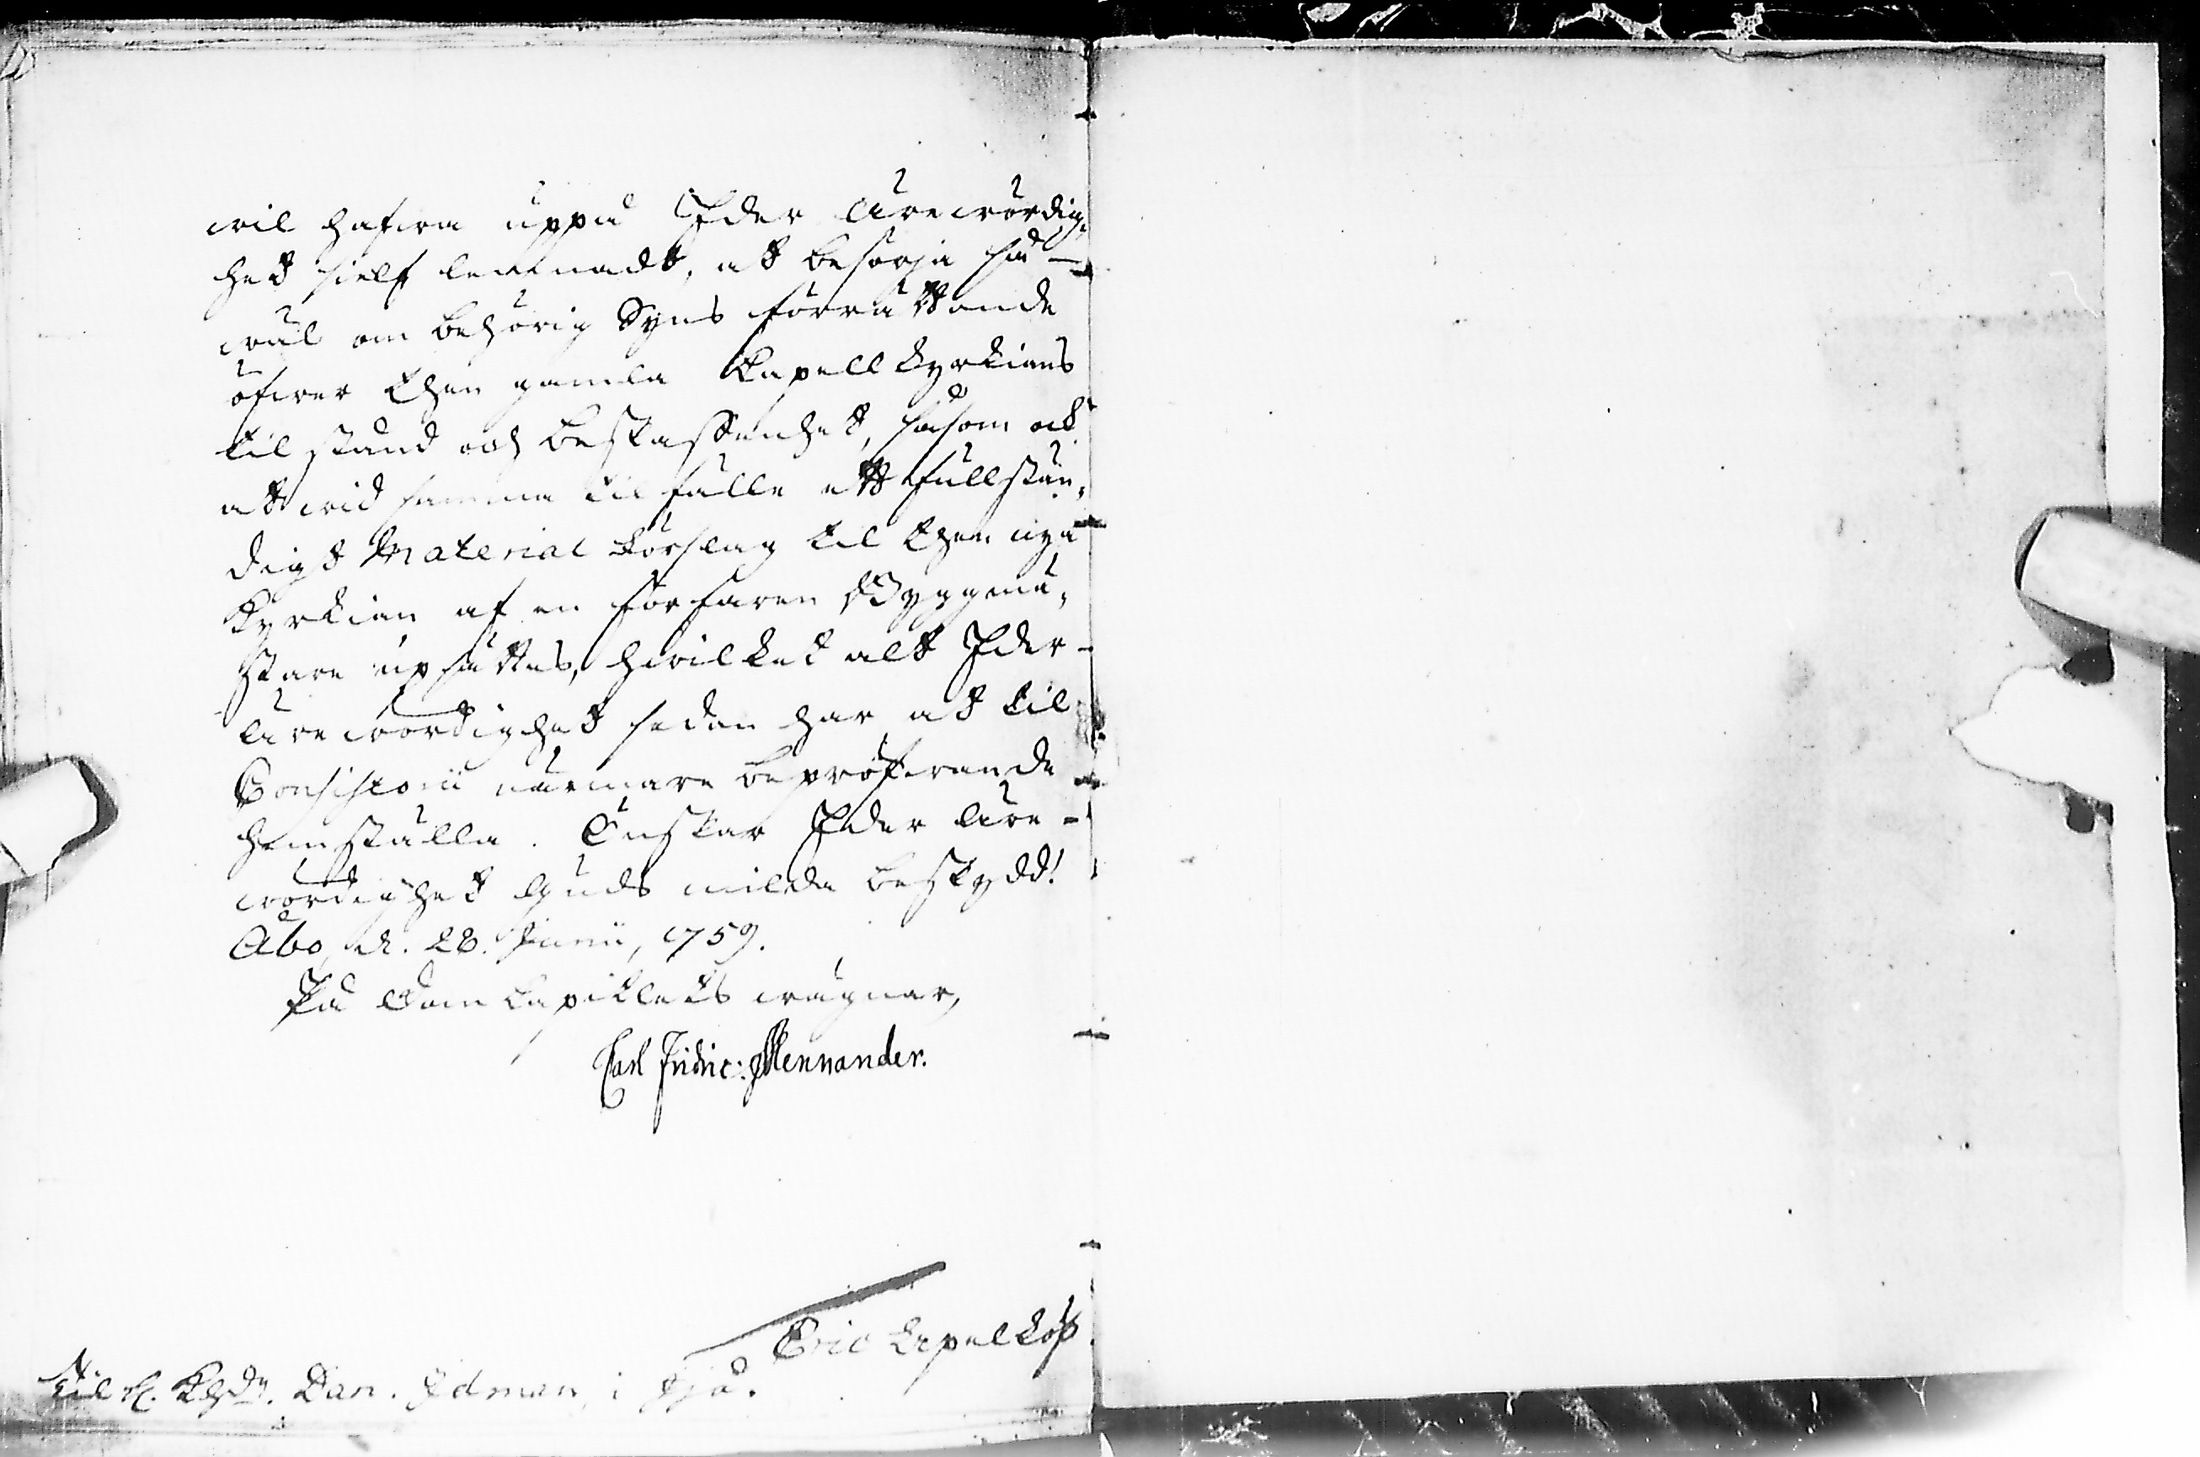 wil hafwa uppå Eder ärewördig-
het sielf lemnadt, at besörja så-
wäl om behörig Syns förrättande
öfwer then gamla Capell kyrkians
tilstånd och beskaffenhet, såsom ock
at wid samma tilfälle ett fullstän-
digt Material förslag til then nya
Kyrkian af en förfaren Byggmä-
stare upsättes, hwilket alt Eder
ärewördighet sedan har at til
Consistorii närmare bepröfwande
hemställa. Önskar Eder äre-
wördighet Guds milda beskydd!
Åbo, d. 28. Junii, 1759.
På Dom Capitlets wägnar,
Carl Fridric: Mennander.
Eric Lepelköp
Til Probsten Dan. Idman, i